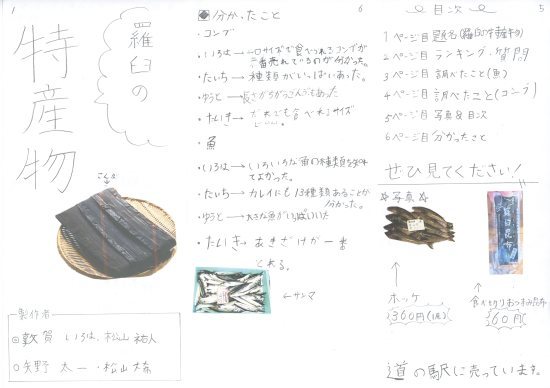 1
羅臼の
特産物
こんぶ
製作者
◎敦賀 いろは、松山 祐人
◎矢野 太一・松山 大希
6
分かったこと
・コンブ
・いろは→一口サイズで食べられるコンブが
一番売れているのが分かった。
・たいち→種類がいっぱいあった。
・ゆうと→長さがちがうこんぶもあった
・たいき→だれでも食べれるサイズ
・魚
・いろは→いろいろな魚の種類を知れ
てよかった。
・たいち→カレイにも13種類あることが
分かった。
・ゆうと→
・たいき→あきざけが一番
とれる。
←サンマ
5
目次
1ページ目 題名(羅臼の特産物)
2ページ目 ランキング、質問
3ページ目 調べたこと(魚)
4ページ目 調べたこと(コンブ)
5ページ目 写真&目次
6ページ目 分かったこと
ぜひ見てください!
☆写真☆
羅臼昆布
ホッケ
360円(税)
食べ切りおつまみ昆布
60円
道の駅に売っています。